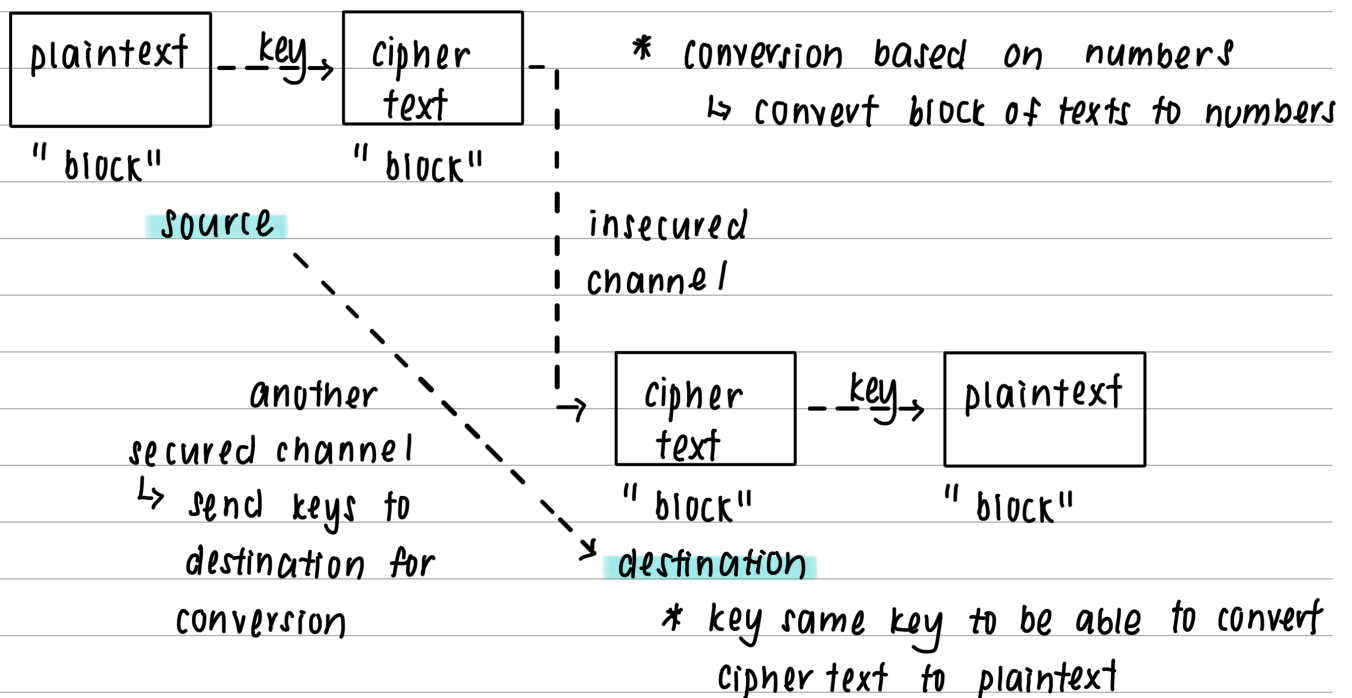 plaintext
key
cipher
text
"block"
"block"
* conversion based on numbers
↳ convert block of texts to numbers
source
insecured
channel
another
secured channel
↳ send keys to
destination for
conversion
cipher
text
key
plaintext
"block"
"block"
destination
* key same key to be able to convert
cipher text to plaintext